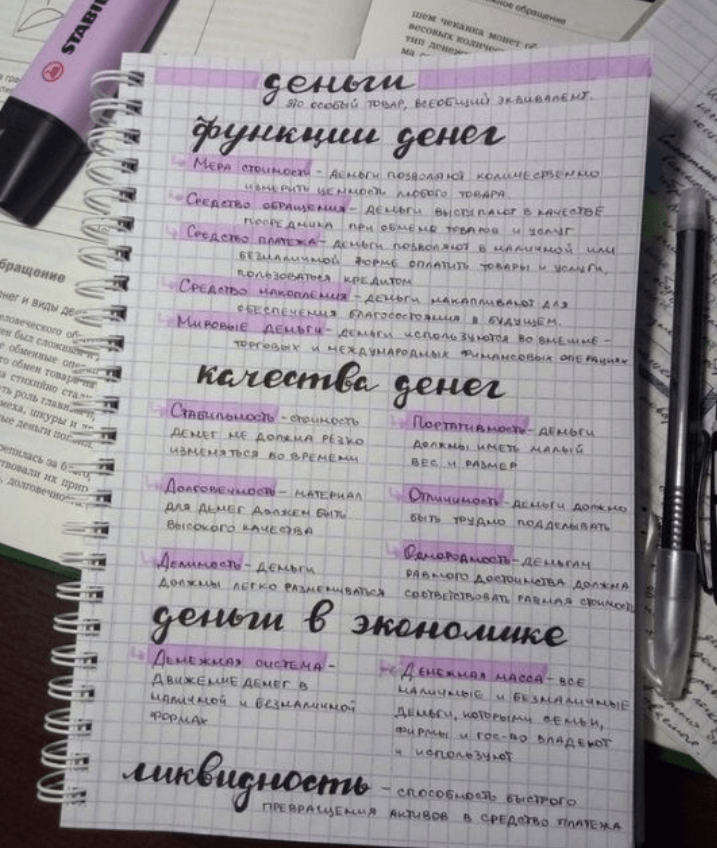 STABIL
шем чеканка монет
весовых количес
тип денежн
деньги
это особый товар, всеобщий эквивалент.
функции денег
Мера стоимости - деньги позволяют количественно
измерить ценность любого товара
Средство обращения - деньги выступают в качестве
посредника при обмене товаров и услуг
Средство платежа - деньги позволяют в наличной или
безналичной форме оплатить товары и услуги,
пользоваться кредитом
Средство накопления - деньги накапливают для
обеспечения благосостояния в будущем.
Мировые деньги - деньги используются во внешне-
торговых и международных финансовых операциях
качества денег
Стабильность - стоимость
денег не должна резко
изменяться во времени
Портативность - деньги
должны иметь малый
вес и размер
Долговечность - материал
для денег должен быть
высокого качества
Отличимость - деньги должно
быть трудно подделывать
Делимость - деньги
должны легко размениваться
Однородность - деньгам
равного достоинства должна
соответствовать равная стоимость
деньги в экономике
Денежная система -
движение денег в
наличной и безналичной
формах
Денежная масса - все
наличные и безналичные
деньги, которыми семьи,
фирмы и гос-во владеют
и используют
ликвидность - способность быстрого
превращения активов в средство платежа
бращение
нег и виды де